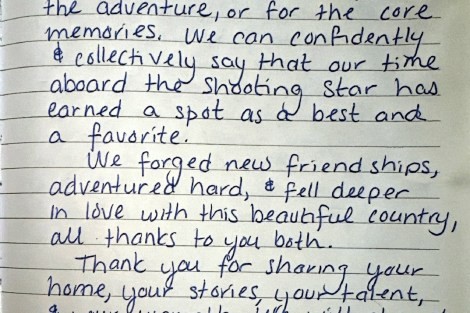 the adventure, or for the core
memories. We can confidently
& collectively say that our time
aboard the Shooting Star has
earned a spot as a best and
a favorite.
We forged new friendships,
adventured hard, & fell deeper
in love with this beautiful country,
all thanks to you both.
Thank you for sharing your
home, your stories, your talent,
&